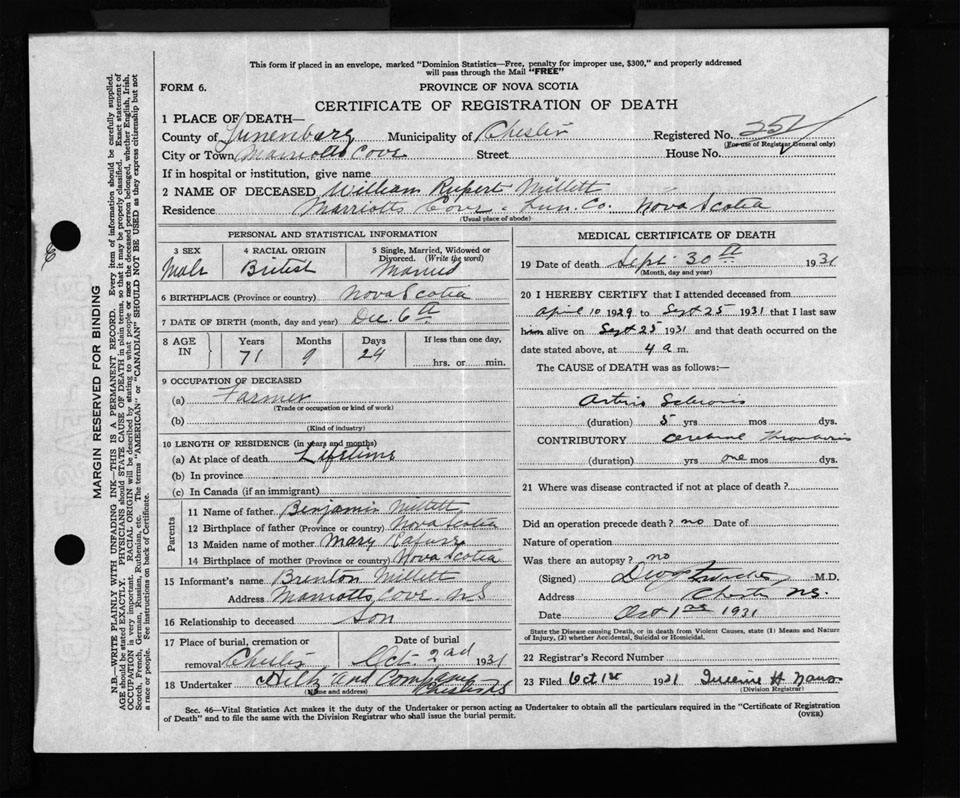 This form if placed in an envelope, marked "Dominion Statistics—Free, penalty for improper use, $300," and properly addressed
will pass through the Mail "FREE"
FORM 6.
PROVINCE OF NOVA SCOTIA
CERTIFICATE OF REGISTRATION OF DEATH
1 PLACE OF DEATH—
County of Lunenburg Municipality of Chester Registered No.
(For use of Registrar General only)
City or Town Marriotts Cove Street House No.
If in hospital or institution, give name
2 NAME OF DECEASED William Rupert Millett
Residence Marriotts Cove Lun. Co. Nova Scotia
(Usual place of abode)
PERSONAL AND STATISTICAL INFORMATION
3 SEX
Male
4 RACIAL ORIGIN
British
5 Single, Married, Widowed or
Divorced. (Write the word)
Married
6 BIRTHPLACE (Province or country) Nova Scotia
7 DATE OF BIRTH (month, day and year) Dec. 6th
8 AGE
IN
Years Months Days If less than one day,
71 9 24
hrs. or min.
9 OCCUPATION OF DECEASED
(a) Farmer
(Trade or occupation or kind of work)
(b)
(Kind of industry)
10 LENGTH OF RESIDENCE (in years and months)
(a) At place of death Lifetime
(b) In province
(c) In Canada (if an immigrant)
Parents
11 Name of father Benjamin Millett
12 Birthplace of father (Province or country) Nova Scotia
13 Maiden name of mother Mary Rafuse
14 Birthplace of mother (Province or country) Nova Scotia
15 Informant's name Brenton Millett
Address Marriotts Cove N S
16 Relationship to deceased Son
17 Place of burial, cremation or
removal Chester
Date of burial
Oct 2nd 1931
18 Undertaker Hiltz and Company
Chester N S
(Name and address)
MEDICAL CERTIFICATE OF DEATH
19 Date of death Sept 30th 1931
(Month, day and year)
20 I HEREBY CERTIFY that I attended deceased from
April 10 1929 to Sept 25 1931 that I last saw
him alive on Sept 25 1931 and that death occurred on the
date stated above, at 4 a m.
The CAUSE of DEATH was as follows:—
Arterio Sclerosis
(duration) 5 yrs mos dys.
CONTRIBUTORY Cerebral Thrombosis
(duration) yrs one mos dys.
21 Where was disease contracted if not at place of death?
Did an operation precede death? no Date of
Nature of operation
Was there an autopsy? no
(Signed) M.D.
Address Chester N.S.
Date Oct 1st 1931
State the Disease causing Death, or in death from Violent Causes, state (1) Means and Nature
of Injury, (2) whether Accidental, Suicidal or Homicidal.
22 Registrar's Record Number
23 Filed Oct 1st 1931
(Division Registrar)
Sec. 46—Vital Statistics Act makes it the duty of the Undertaker or person acting as Undertaker to obtain all the particulars required in the "Certificate of Registration
of Death" and to file the same with the Division Registrar who shall issue the burial permit.
(OVER)
MARGIN RESERVED FOR BINDING
N.B.—WRITE PLAINLY WITH UNFADING INK—THIS IS A PERMANENT RECORD. Every item of information should be carefully supplied.
AGE should be stated EXACTLY. PHYSICIANS should STATE CAUSE OF DEATH in plain terms, so that it may be properly classified. Exact statement of
OCCUPATION is very important. RACIAL ORIGIN will be described by stating to what people or race the deceased person belonged, whether English, Irish,
Scotch, French, German, Russian, Ruthenian, etc. The terms "AMERICAN" or "CANADIAN" SHOULD NOT BE USED as they express citizenship but not
a race or people. See instructions on back of Certificate.